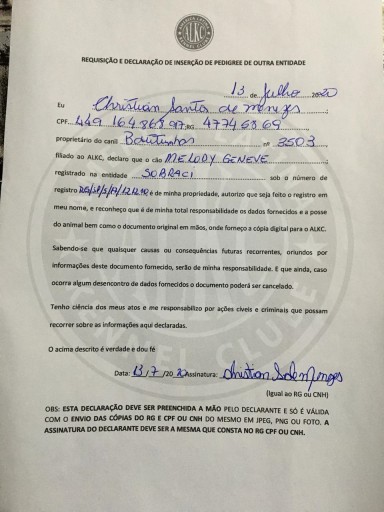 ALKC
REQUISIÇÃO E DECLARAÇÃO DE INSERÇÃO DE PEDIGREE DE OUTRA ENTIDADE
13 de Julho 2020
Eu Christian Santos de menezes
CPF. 449 164 868 97, RG 4774 58 69
proprietário do canil Boutinhas nº 3503
filiado ao ALKC, declaro que o cão MELODY GENEVE
registrado na entidade SOBRACI sob o número de
registro e de minha propriedade, autorizo que seja feito o registro em
meu nome, e reconheço que é de minha total responsabilidade os dados fornecidos e a posse
do animal bem como o documento original em mãos, onde forneço a cópia digital para o ALKC.
Sabendo-se que quaisquer causas ou consequências futuras recorrentes, oriundos por
informações deste documento fornecido, serão de minha responsabilidade. E que ainda, caso
ocorra algum desencontro de dados fornecidos o documento poderá ser cancelado.
Tenho ciência dos meus atos e me responsabilizo por ações cíveis e criminais que possam
recorrer sobre as informações aqui declaradas.
O acima descrito é verdade e dou fé
Data: 13/7/2020 Assinatura: Christian S de Menezes
(Igual ao RG ou CNH)
OBS: ESTA DECLARAÇÃO DEVE SER PREENCHIDA A MÃO PELO DECLARANTE E SÓ É VÁLIDA
COM O ENVIO DAS CÓPIAS DO RG E CPF OU CNH DO MESMO EM JPEG, PNG OU FOTO. A
ASSINATURA DO DECLARANTE DEVE SER A MESMA QUE CONSTA NO RG CPF OU CNH.